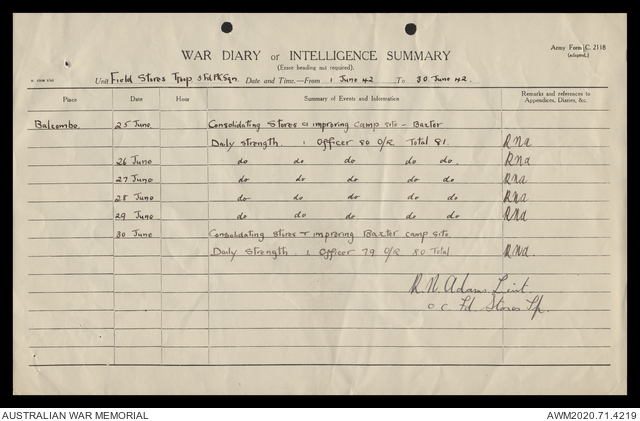 Army Form C. 2118
(adapted.)
WAR DIARY or INTELLIGENCE SUMMARY
(Erase heading not required).
Unit Field Stores Troop Date and Time.—From 1 June 42, To 30 June 42.
Place Date Hour Summary of Events and Information Remarks and references to Appendices, Diaries, &c.
Balcombe. 25 June Consolidating Stores & improving camp site - Baxter
Daily strength. 1 Officer 80 O/R Total 81. RNA
26 June do do do do do. RNA
27 June do do do do do RNA
28 June do do do do do RNA
29 June do do do do do RNA
30 June Consolidating stores & improving Baxter camp site.
Daily Strength. 1 Officer 79 O/R 80 Total RNA.
R.N. Adams Lieut.
O.C. Fd. Stores Tp.
AUSTRALIAN WAR MEMORIAL AWM2020.71.4219